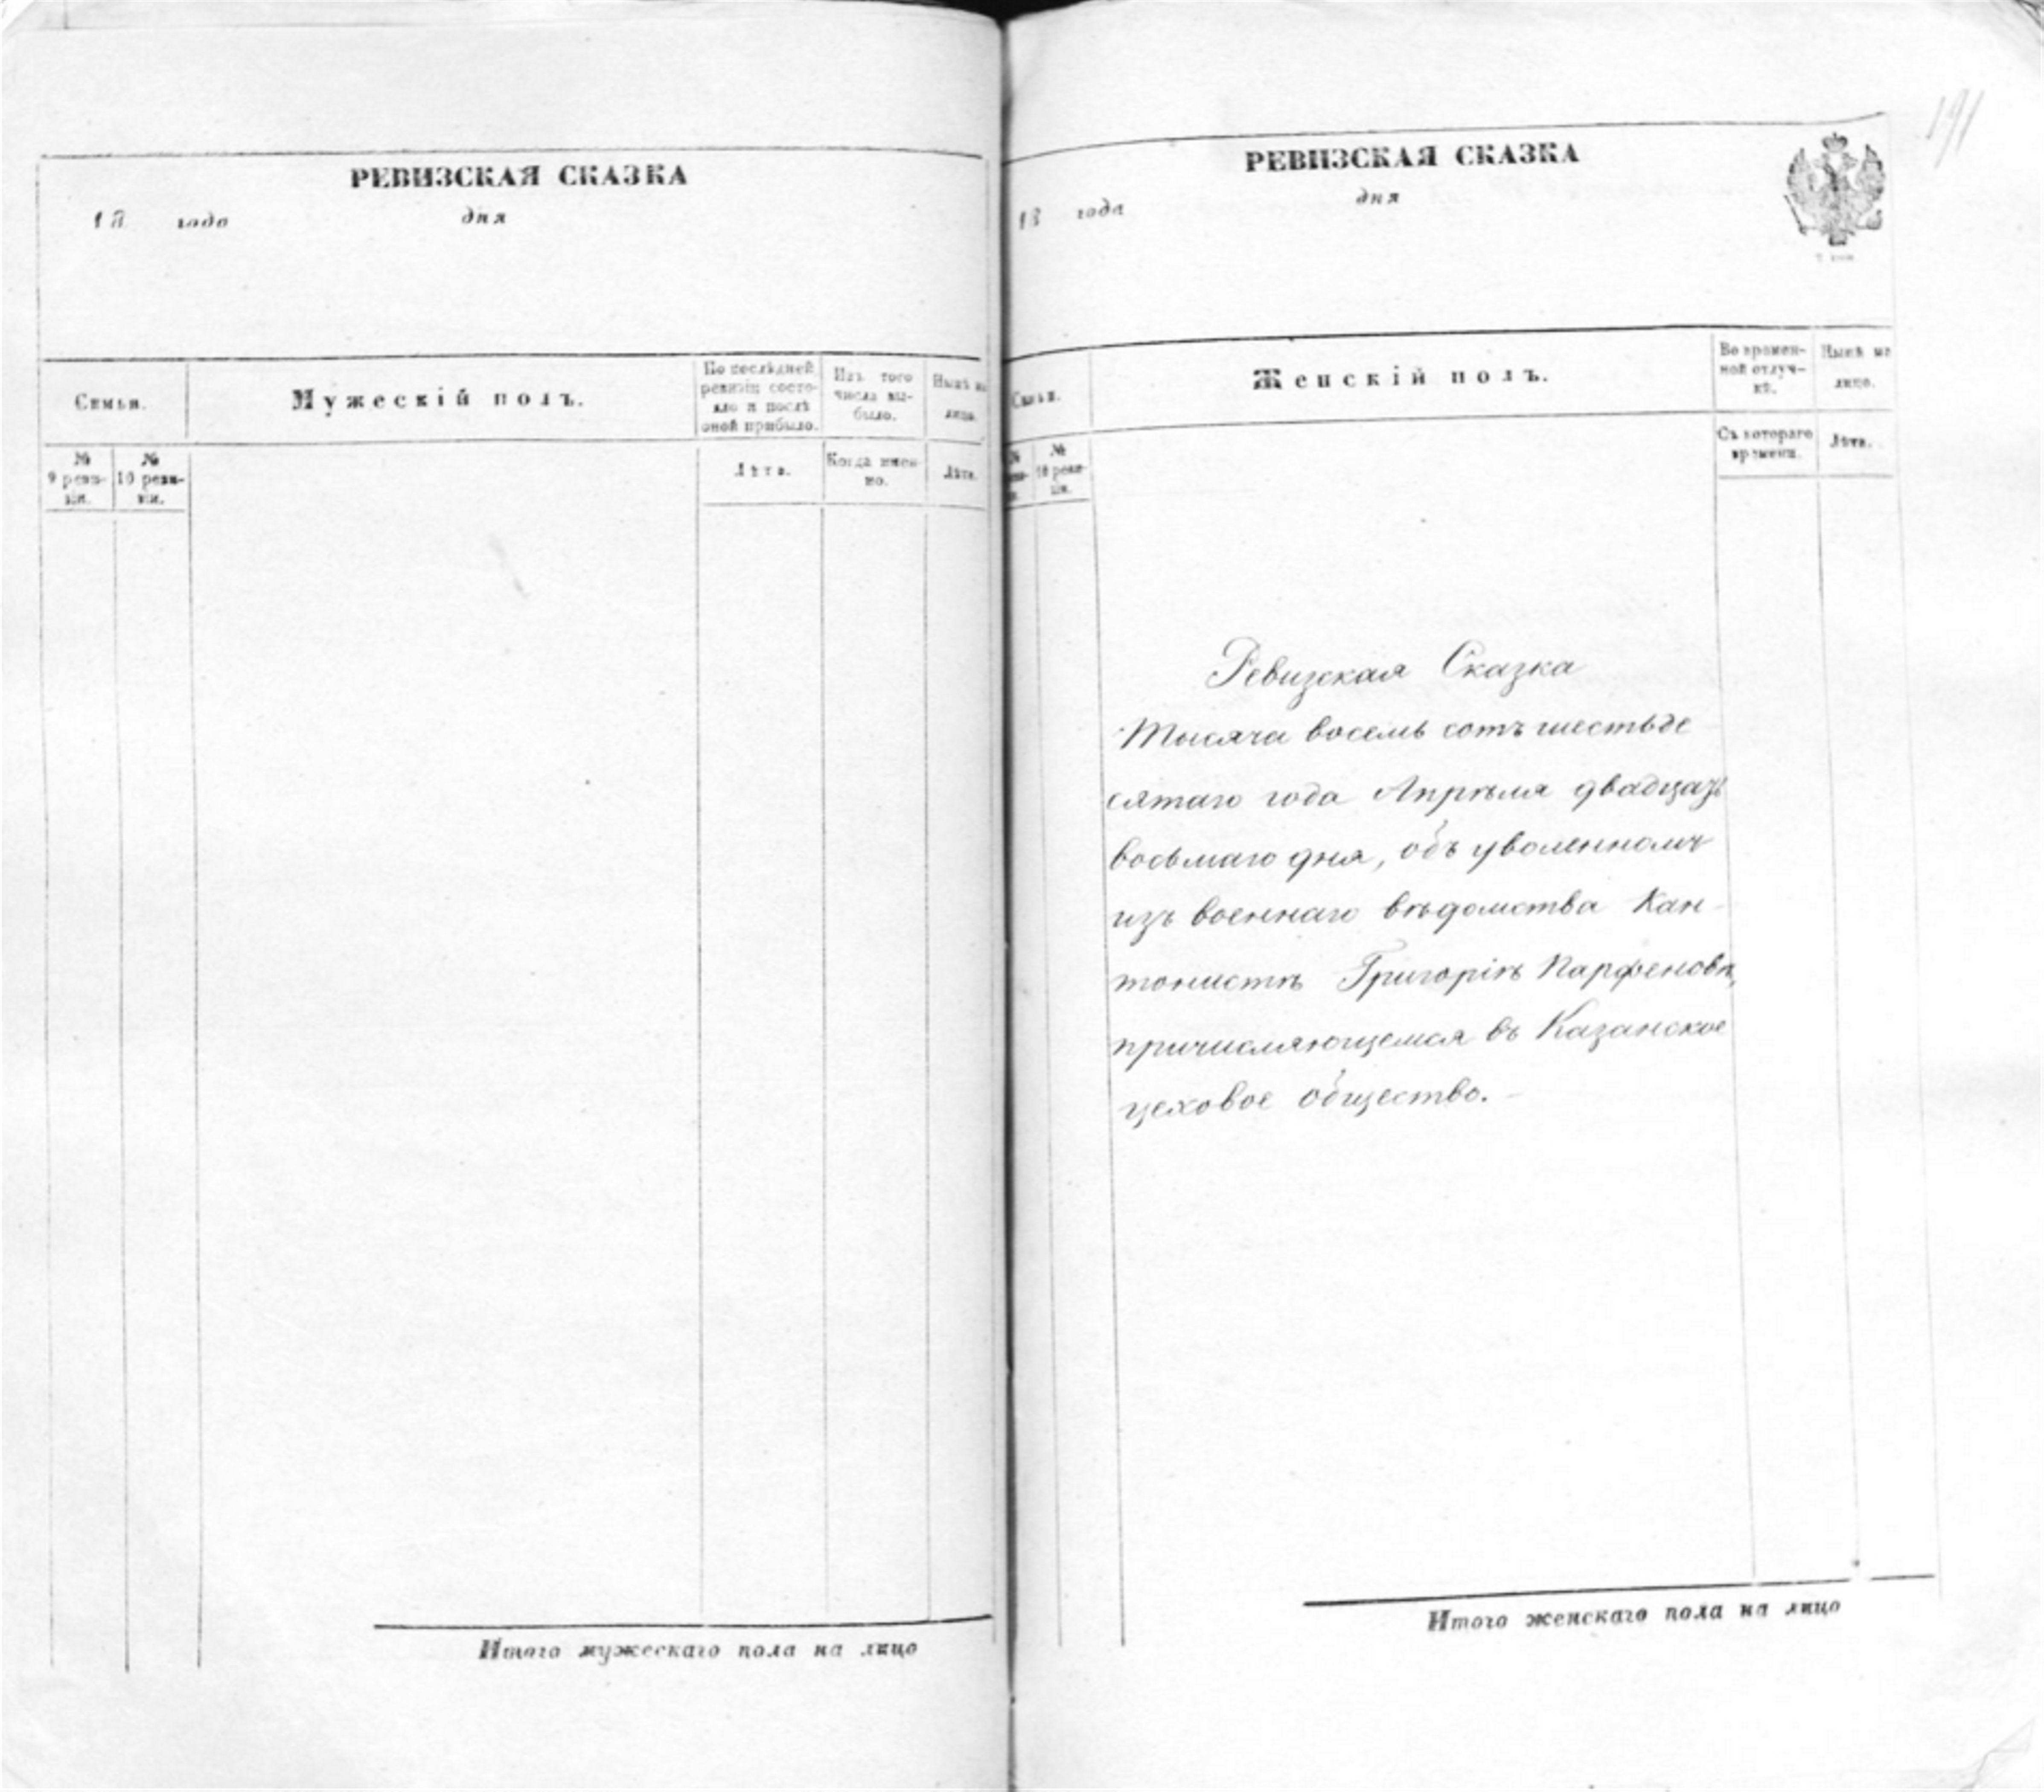 РЕВИЗСКАЯ СКАЗКА
18 года дня
Семьи.
Мужескій полъ.
По послѣдней
ревизіи состо-
яло и послѣ
оной прибыло.
Изъ того
числа вы-
было.
Нынѣ на
лицо.
№
9 реви-
зіи.
№
10 реви-
зіи.
Лѣта.
Когда имен-
но.
Лѣта.
Итого мужескаго пола на лицо
191
РЕВИЗСКАЯ СКАЗКА
18 года дня
Семьи.
Женскій полъ.
Во времен-
ной отлуч-
кѣ.
Нынѣ на
лицо.
№
№
10 реви-
зіи.
Съ котораго
времени.
Лѣта.
Ревизская Сказка
Тысяча восемь сотъ шестьде
сятаго года Апрѣля двадцать
восьмаго дня, объ уволенномъ
изъ военнаго вѣдомства Кан-
тонистѣ Григоріѣ Парфеновѣ,
причисляющемся въ Казанское
цеховое общество.-
Итого женскаго пола на лицо